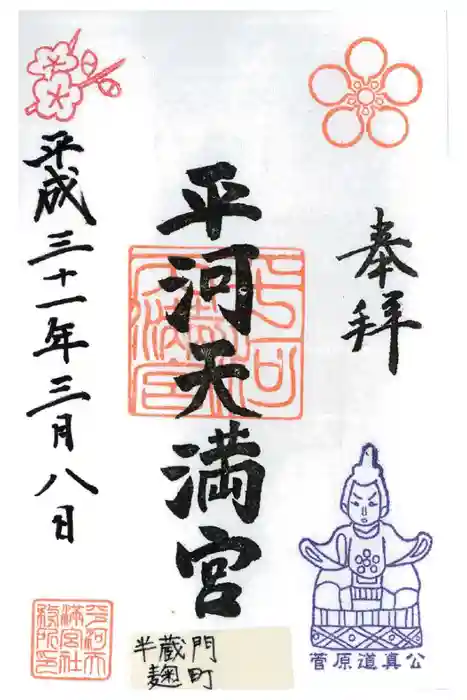 奉拝
平河天満宮
平成三十一年三月八日
菅原道真公
半蔵門
麹町
平河天
満宮社
務所印